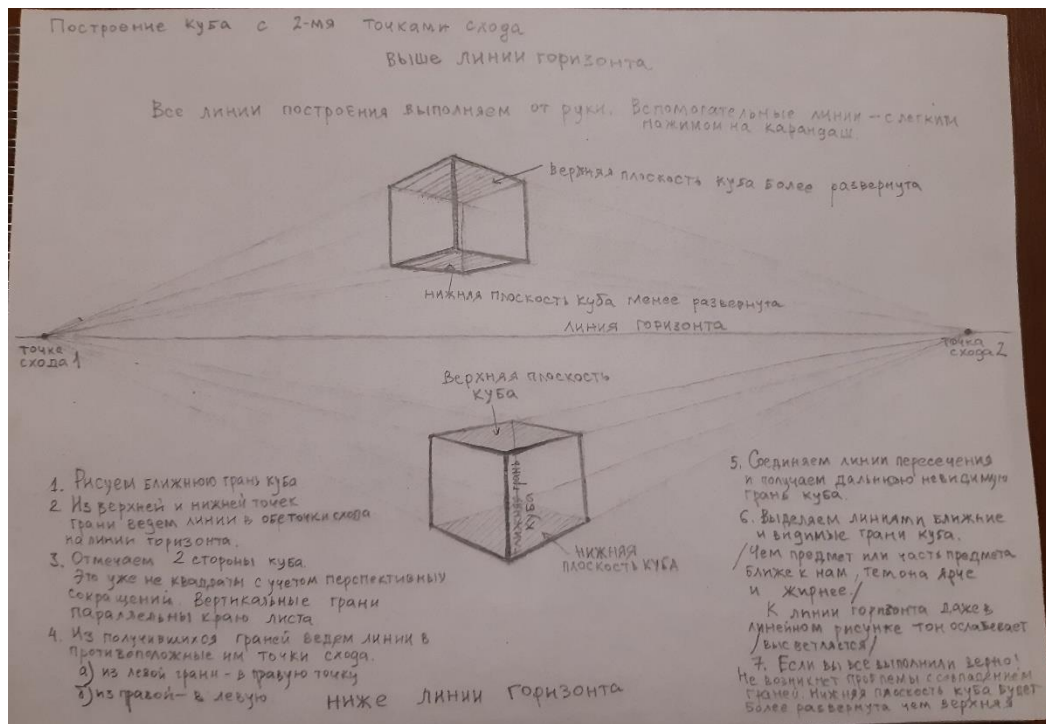 Построение куба с 2-мя точками схода
выше линии горизонта.
Все линии построения выполняем от руки. Вспомогательные линии – с легким
нажимом на карандаш.
Верхняя плоскость куба более развернута
нижная плоскость куба менее развернута
линия горизонта
точка
схода 1
точка
схода 2
Верхняя плоскость
куба
ближняя грань
куба
нижняя
плоскость куба
1. Рисуем ближнюю грань куба
2 Из верхней и нижней точек
грани ведем линии в обе точки схода
на линии горизонта.
3. Отмечаем 2 стороны куба.
Это уже не квадраты с учетом перспективных
сокращений. Вертикальные грани
параллельны краю листа
4. Из получившихся граней ведем линии в
противоположные им точки схода.
а) из левой грани – в правую точку
б) из правой – в левую
ниже линии горизонта
5. Соединяем линии пересечения
и получаем дальнюю невидимую
грань куба.
6. Выделаем линиями ближние
и видимые грани куба.
/Чем предмет или часть предмета
ближе к нам, тем она ярче
и жирнее./
К линии горизонта даже в
линейном рисунке тон ослабевает
/высветляется/
7. Если вы все выполнили верно!
Не возникнет проблемы с совпадением
граней. Нижняя плоскость куба будет
более развернута чем верхняя